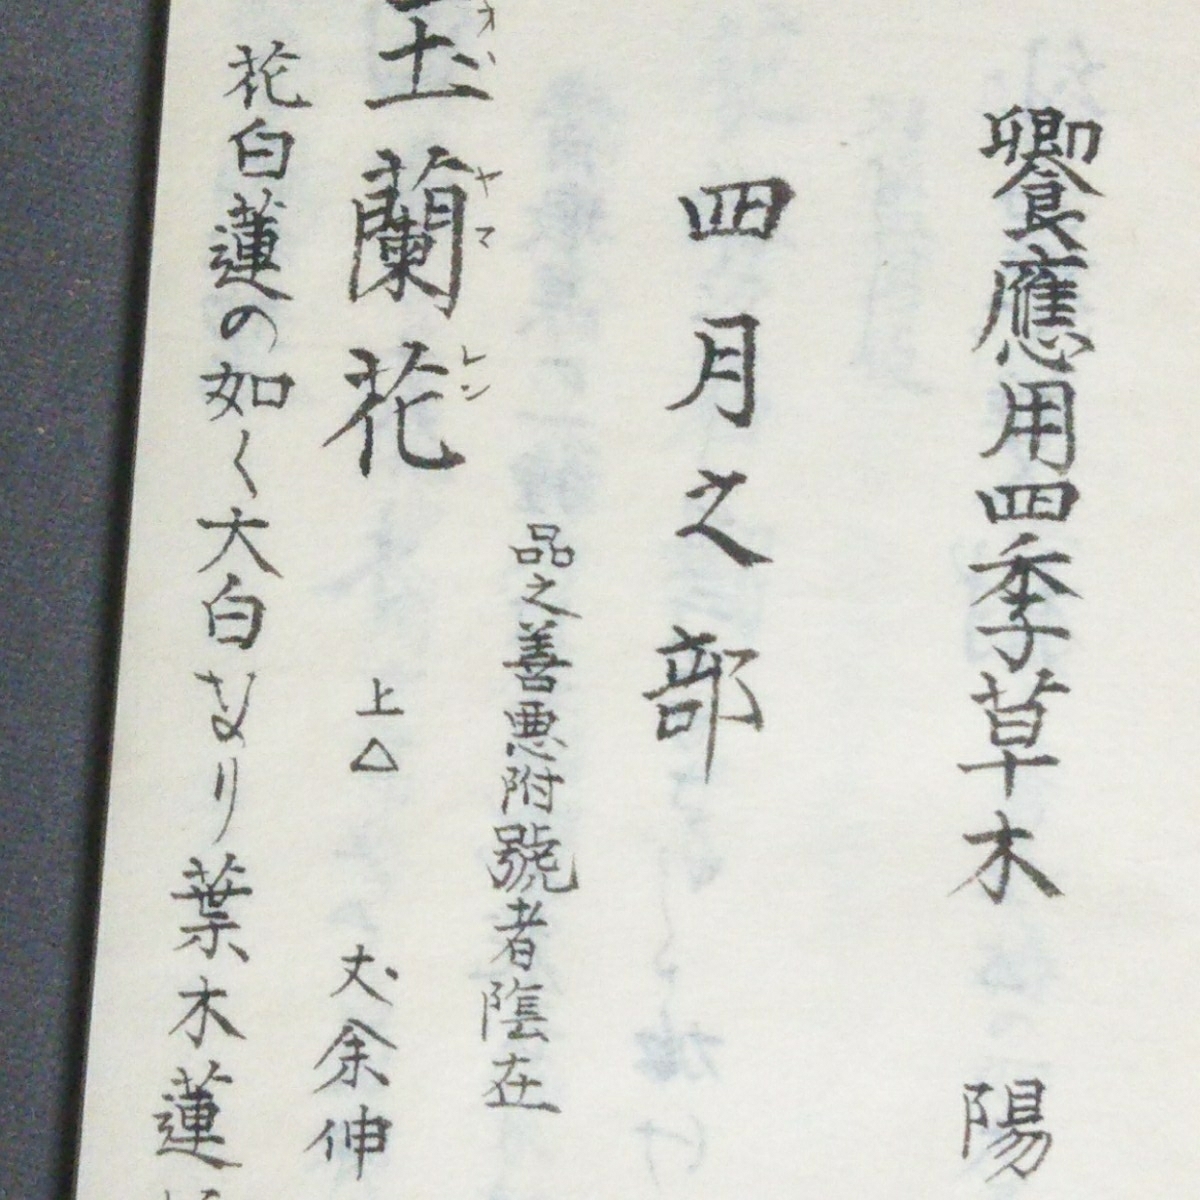 饗應用四季草木 陽
四月之部
品之善悪附號者陰在
玉蘭花 上△ 丈余伸
オハヤマレン
花白蓮の如く大白なり葉木蓮